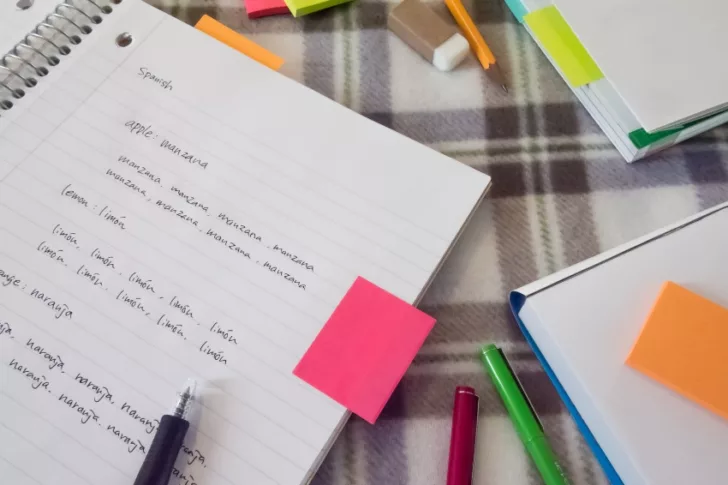 Spanish
apple : manzana
manzana . manzana . manzana . manzana
manzana . manzana . manzana . manzana
lemon : limón
limón . limón . limón . limón . limón
limón . limón . limón . limón . limón
naranja
naranja . naranja . naranja
naranja . naranja . naranja